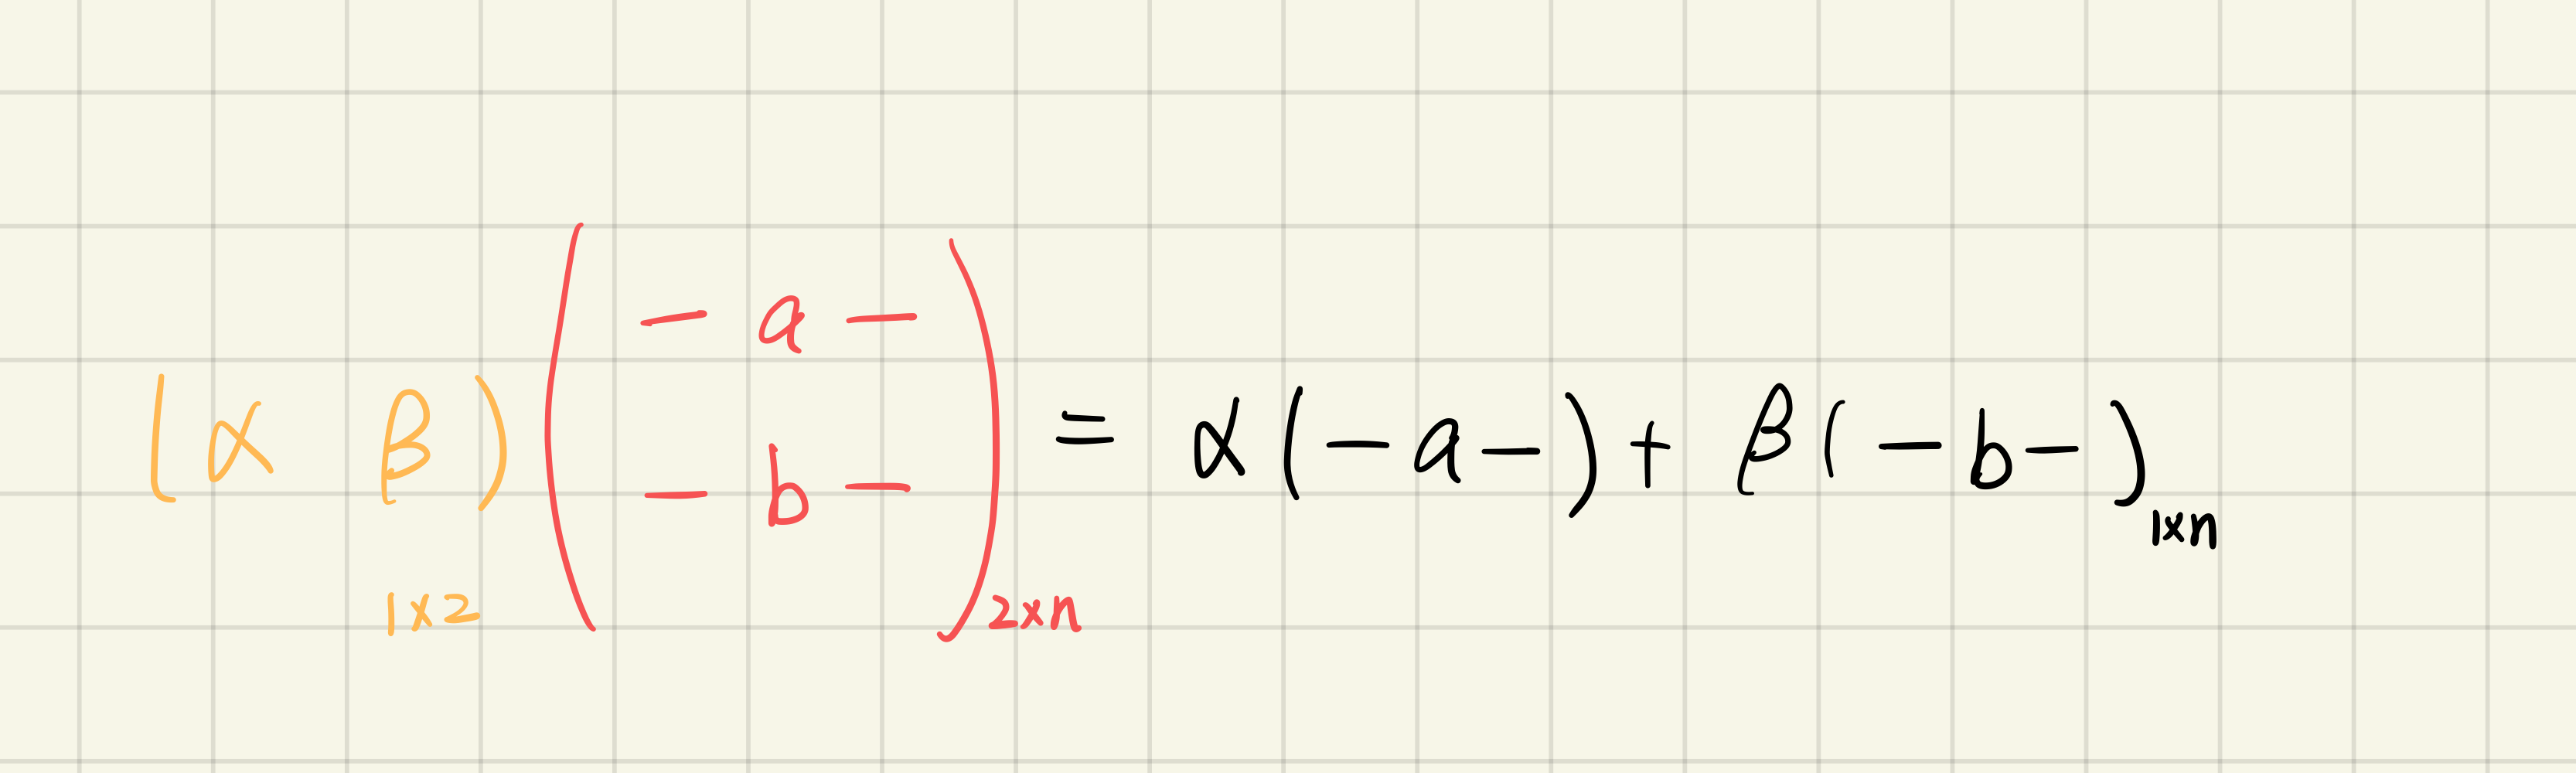 (α β)₁ₓ₂ ( — a — / — b — )₂ₓₙ = α(— a —) + β(— b —)₁ₓₙ